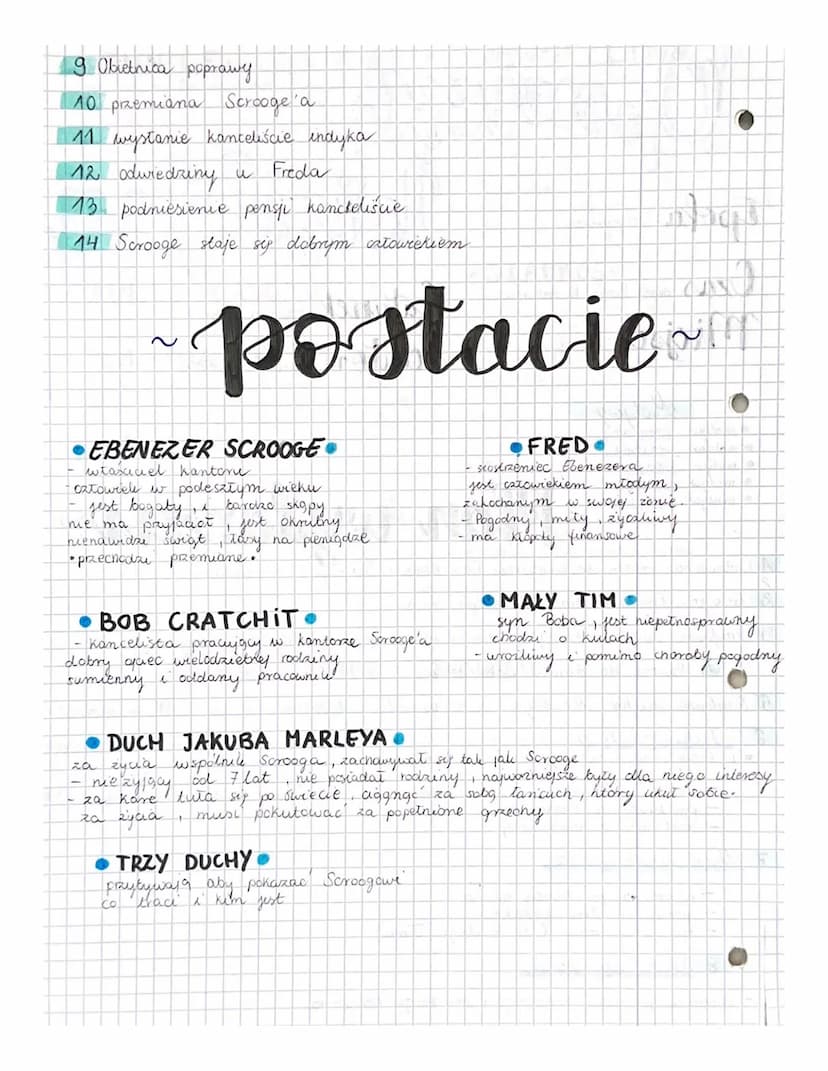 9 Obietnica poprawy
10 przemiana Scrooge'a
11 wysłanie kanceliście indyka
12 odwiedziny u Freda
13 podniesienie pensji kanceliście
14 Scrooge staje się dobrym człowiekiem
~postacie~
• EBENEZER SCROOGE •
- właściciel kantoru
- człowiek w podeszłym wieku
- jest bogaty, i bardzo skąpy
nie ma przyjaciół, jest okrutny
nienawidzi świąt, łasy na pieniądze
• przechodzi przemianę •
• FRED •
- siostrzeniec Ebenezera
jest człowiekiem młodym,
zakochanym w swojej żonie.
- Pogodny, miły, życzliwy
- ma kłopoty finansowe
• BOB CRATCHIT •
- kancelista pracujący w kantorze Scrooge'a
dobry ojciec wielodzietnej rodziny
sumienny i oddany pracownik
• MAŁY TIM •
syn Boba, jest niepełnosprawny
chodzi o kulach
- wrażliwy i pomimo choroby pogodny
• DUCH JAKUBA MARLEYA •
za życia wspólnik Scrooga, zachowywał się tak jak Scrooge
- nieżyjący od 7 lat, nie posiadał rodziny, najważniejsze były dla niego interesy
- za karę tuła się po świecie, ciągnąć za sobą łańcuch, który ukuł sobie.
za życia, musi pokutować za popełnione grzechy
• TRZY DUCHY •
przybywają aby pokazać Scroogowi
co traci i kim jest